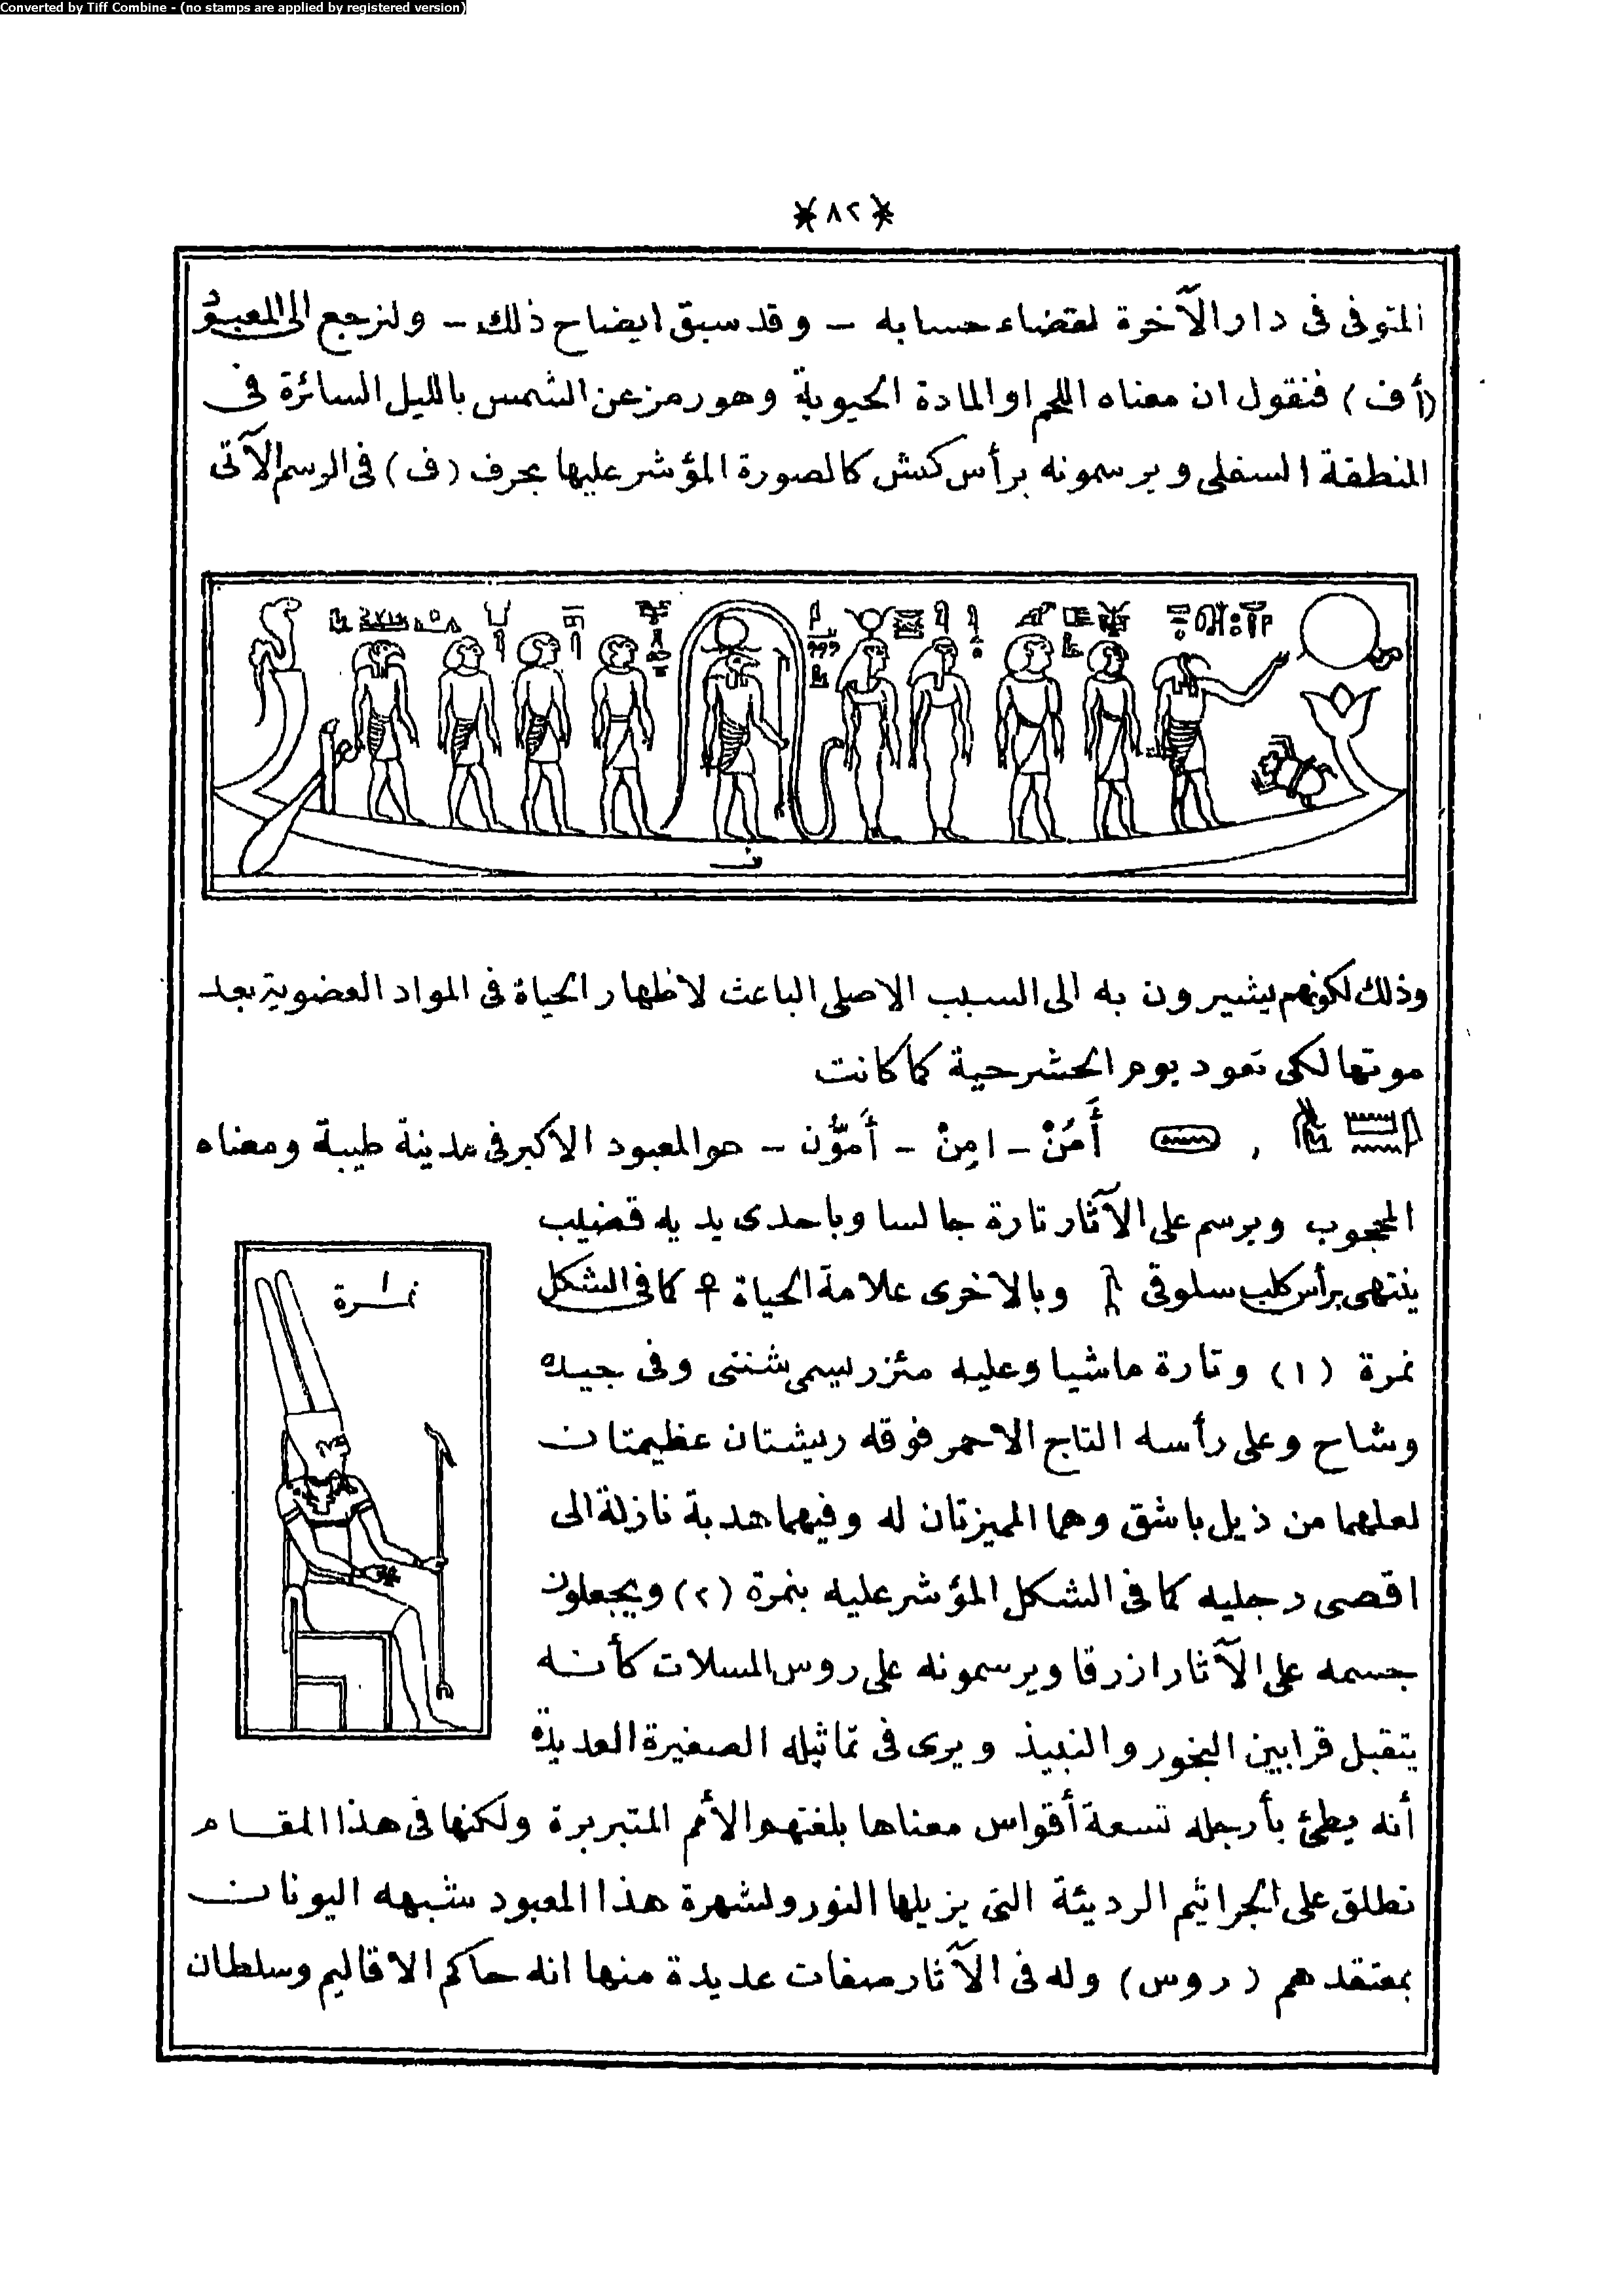 Converted by Tiff Combine - (no stamps are applied by registered version)
* ٨٢ *
المتوفى فى دار الآخرة لقضاء حسابه – وقد سبق ايضاح ذلك – ولنرجع الى المعبود
(أف) فنقول ان معناه اللحم او المادة الحيوية وهو رمز عن الشمس بالليل السائرة فى
المنطقة السفلى ويرسمونه برأس كبش كالصورة المؤشر عليها بحرف (ف) فى الرسم الآتى
ف
وذلك لكونهم يشيرون به الى السبب الاصلى الباعث لاظهار الحياة فى المواد العضوية بعد
موتها لكى تعود يوم الحشر حية كما كانت
أَمُنْ – امِنْ – أَمُوُّن – هو المعبود الاكبر فى مدينة طيبة ومعناه
المحجوب ويرسم على الآثار تارة جالسا وباحدى يديه قضيب
ينتهى برأس كلب سلوقى وبالاخرى علامة الحياة ☥ كما فى الشكل
نمرة (١) وتارة ماشيا وعليه مئزر يسمى شنتى وفى جيده
وشاح وعلى رأسه التاج الاحمر فوقه ريشتان عظيمتان
لعلهما من ذيل باشق وهما المميزتان له وفيهما هدبة نازلة الى
اقصى رجليه كما فى الشكل المؤشر عليه بنمرة (٢) ويجعلون
جسمه على الآثار ازرقا ويرسمونه على روس المسلات كأنه
يتقبل قرابين البخور والنبيذ ويرى فى تماثيله الصغيرة العديدة
أنه يطئ بأرجله تسعة أقواس معناها بلغتهم الأمم المتبربرة ولكنها فى هذا المقام
تطلق على الجراثيم الرديئة التى يزيلها النور ولشهرة هذا المعبود شبهه اليونان
بمعتقدهم (روس) وله فى الآثار صفات عديدة منها انه حاكم الاقاليم وسلطان
نمرة ١